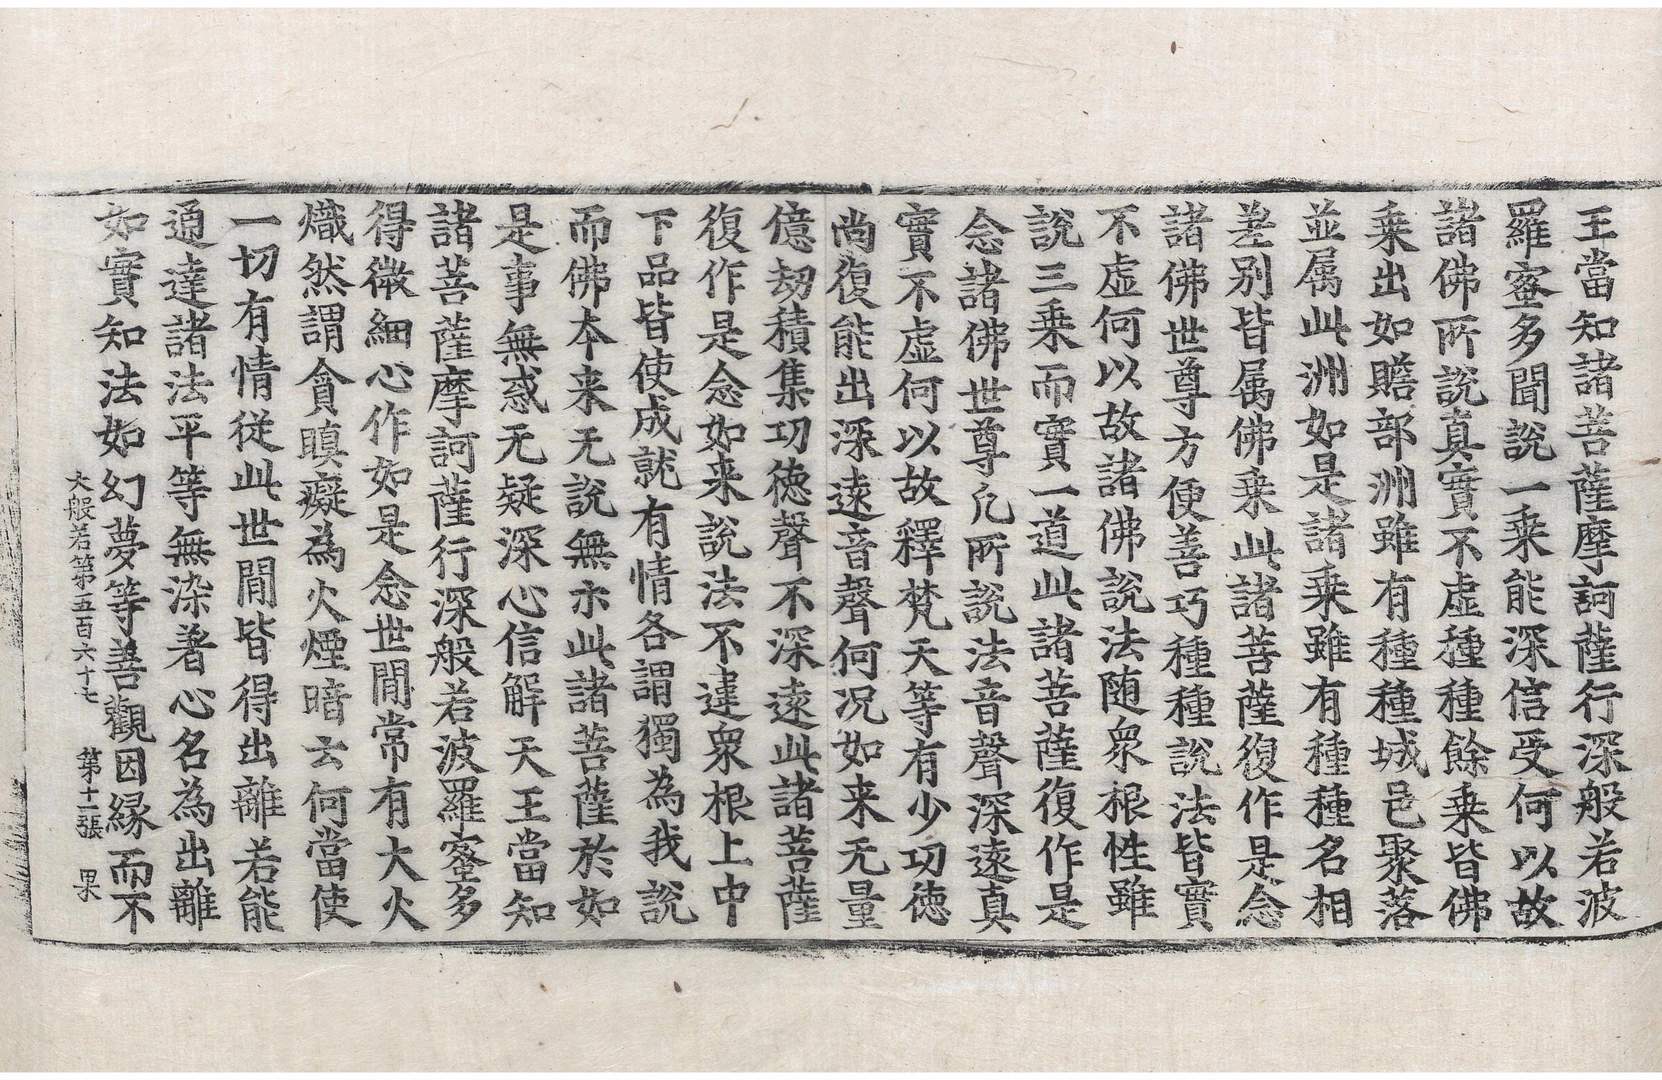 王當知諸菩薩摩訶薩行深般若波
羅蜜多聞說一乗能深信受何以故
諸佛所說真實不虛種種餘乗皆佛
乗出如贍部洲雖有種種城邑聚落
並属此洲如是諸乗雖有種種名相
差别皆属佛乗此諸菩薩復作是念
諸佛世尊方便善巧種種說法皆實
不虛何以故諸佛說法随衆根性雖
說三乗而實一道此諸菩薩復作是
念諸佛世尊凡所說法音聲深遠真
實不虛何以故釋梵天等有少功徳
尚復能出深遠音聲何况如来无量
億劫積集功徳聲不深遠此諸菩薩
復作是念如来說法不違衆根上中
下品皆使成就有情各謂獨為我說
而佛本来无說無示此諸菩薩於如
是事無惑无疑深心信解天王當知
諸菩薩摩訶薩行深般若波羅蜜多
得微細心作如是念世間常有大火
熾然謂貪瞋癡為火煙暗云何當使
一切有情從此世間皆得出離若能
通達諸法平等無染著心名為出離
如實知法如幻夢等善觀因縁而不
大般若第五百六十七 第十張 果